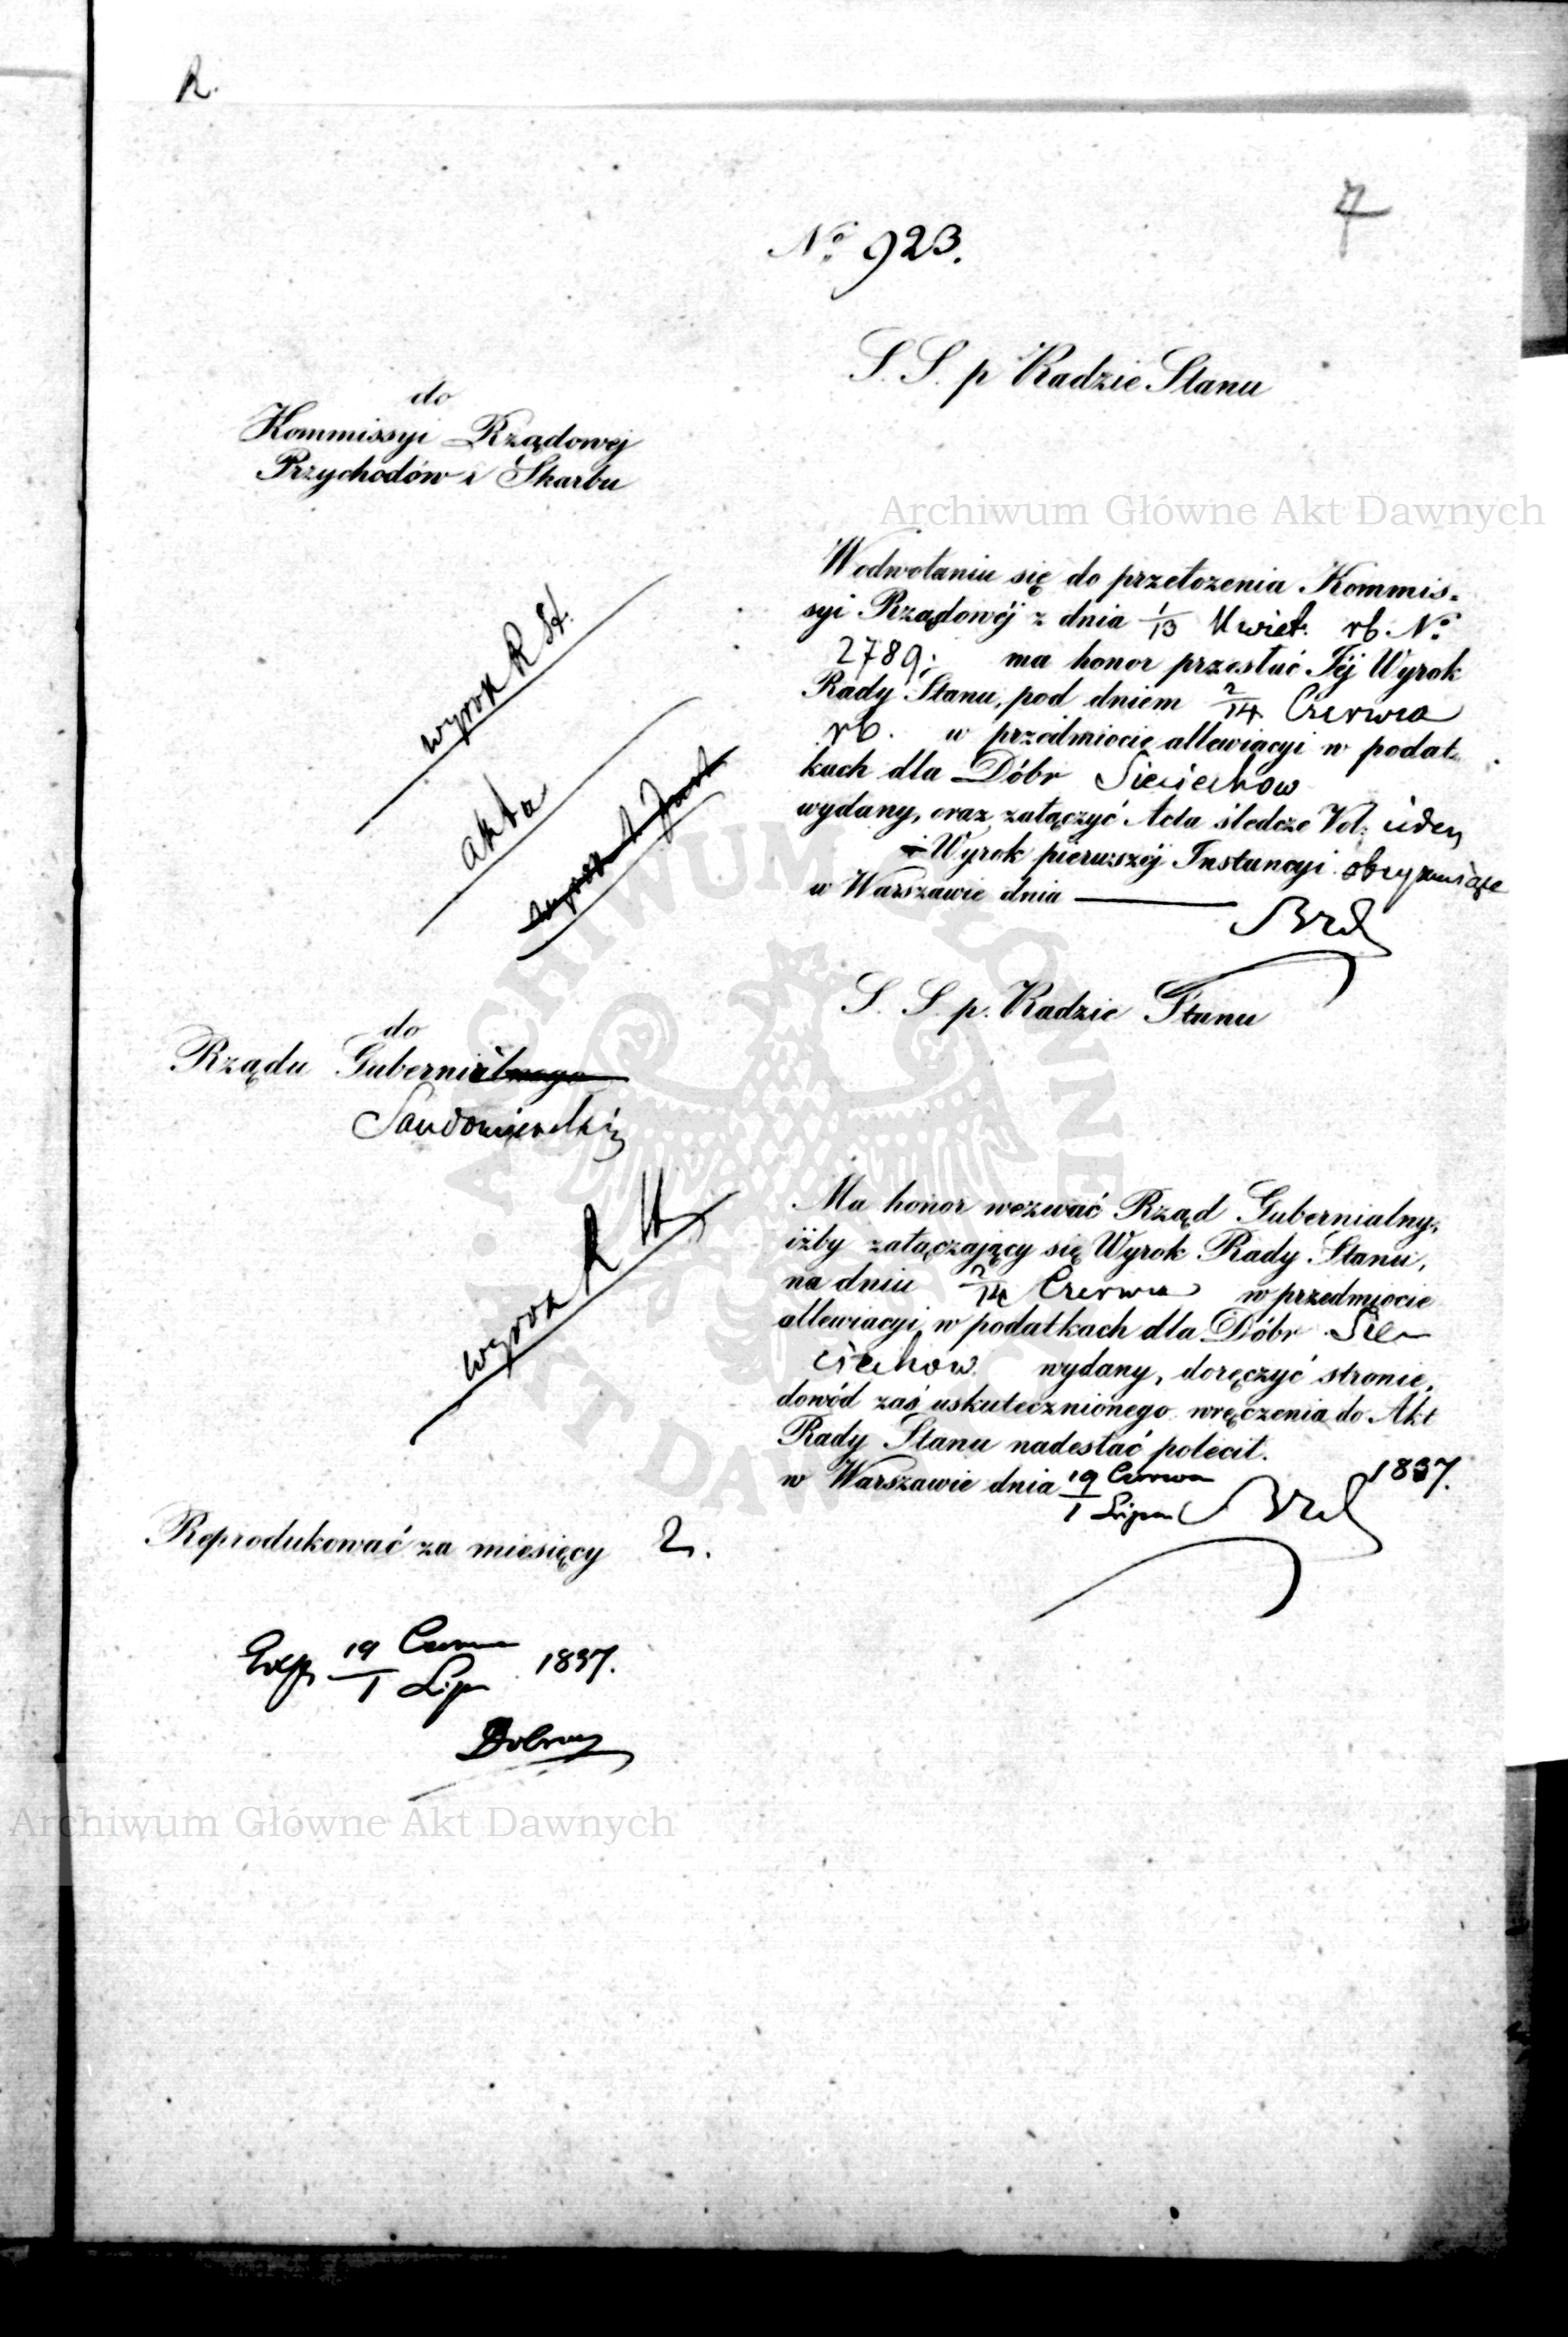 R.
7
Nº 923.
S. S. p Radzie Stanu
do
Kommissyi Rządowej
Przychodów i Skarbu
Archiwum Główne Akt Dawnych
W odwołaniu się do przełożenia Kommis=
syi Rządowéj z dnia 1/13 Kwiet. rb. Nº
2789; ma honor przesłać Téj Wyrok
Rady Stanu, pod dniem 2/14 Czerwca
rb. w przedmiocie allewiacyi w podat=
kach dla Dóbr Sieciechow
wydany, oraz załączyć Acta śledcze Vol: ieden
i Wyrok pierwszéj Instancyi obeymuiące
w Warszawie dnia
wyrok R St.
akta
wyrok 1 Inst
S. S. p. Radzie Stanu
do
Rządu Gubernialnego
Sandomierski
Ma honor wezwać Rząd Gubernialny,
iżby załączający się Wyrok Rady Stanu,
na dniu 2/14 Czerwca w przedmiocie
allewiacyi w podatkach dla Dóbr Sie
ciechow wydany, doręczyć stronie,
dowód zaś uskutecznionego wręczenia do Akt
Rady Stanu nadesłać polecił.
w Warszawie dnia 19 Czerwca / 1 Lipca 1837.
wyrok R St
Reprodukować za miesięcy 2.
Exp. 19 Czerwca / 1 Lipca 1837.
Archiwum Główne Akt Dawnych
ARCHIWUM GŁÓWNE AKT DAWNYCH